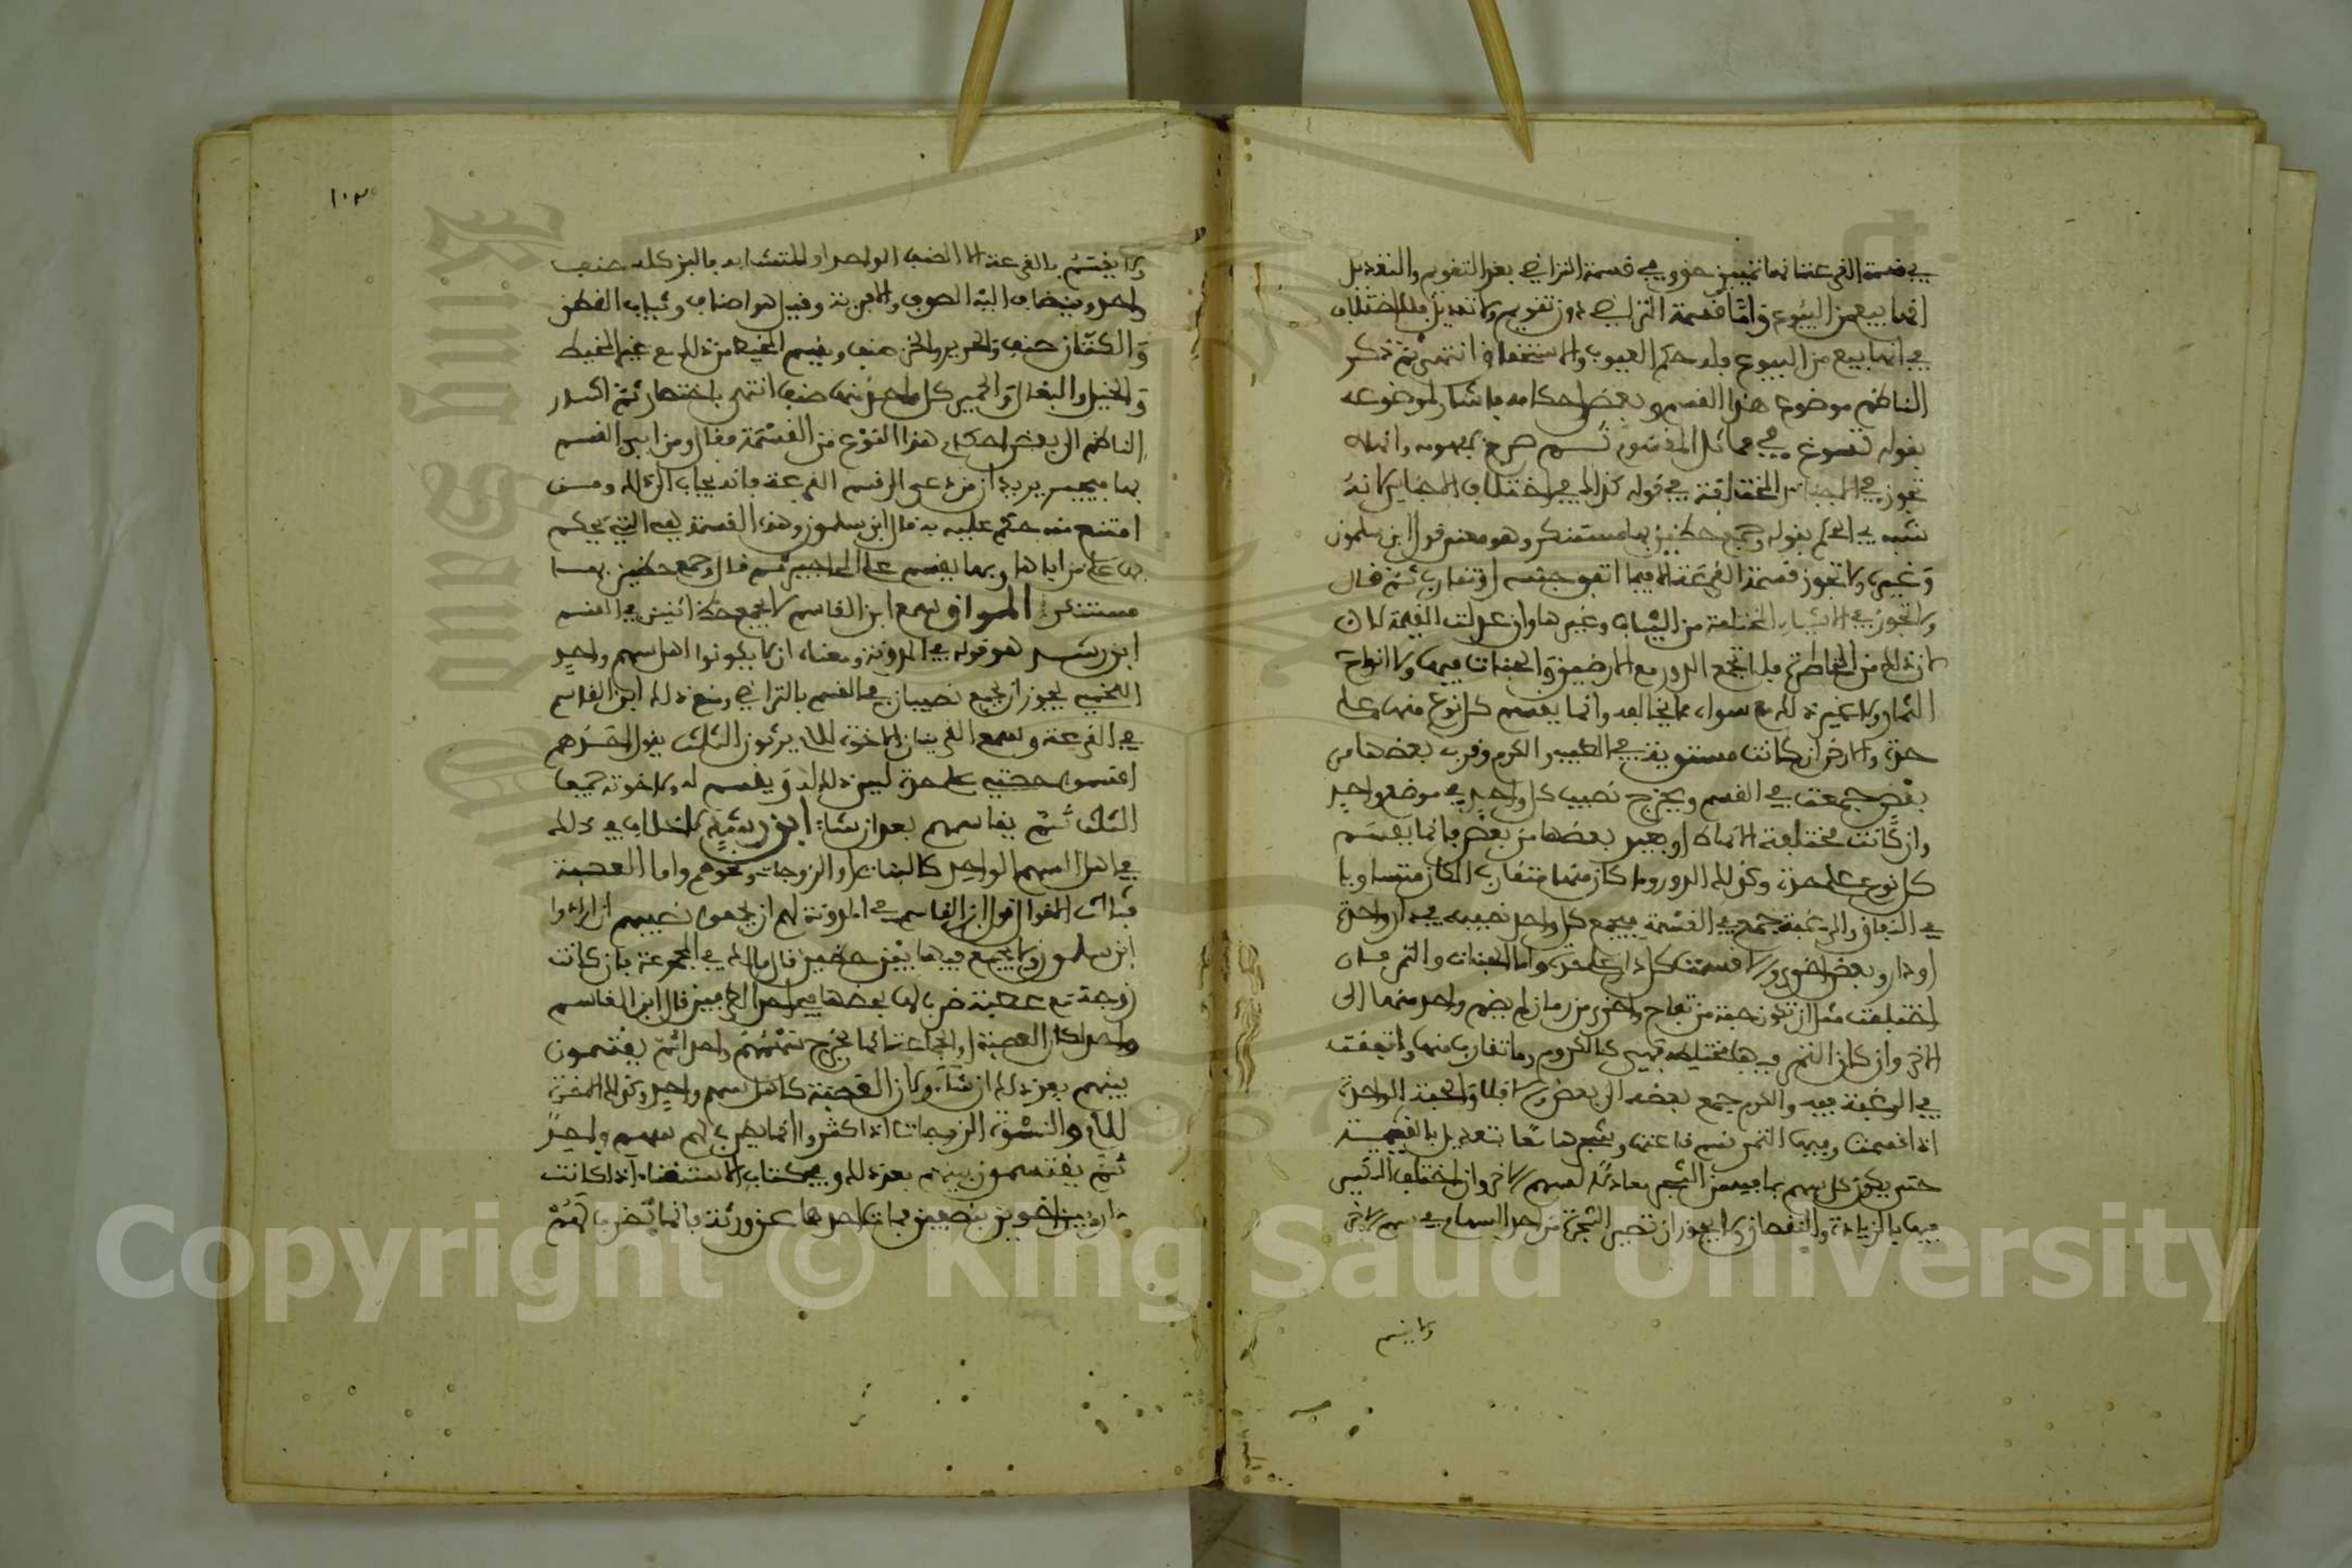 في قسمة القرعة انها تمييز حق وفي قسمة التراضي بعد التقويم والتعديل
انها بيع من البيوع واما قسمة التراضي دون تقويم ولا تعديل فلا اختلاف
في انها بيع من البيوع ولد حكم العيوب والاستحقاق انتهى ثم ذكر
الناظم موضوع هذا القسم وبعض احكامه فاشار لموضوعه
بقوله تسوغ في تماثل المقسوم صرح بمفهومه وانها لا
تجوز في المختلفة في قوله كذاك في اختلاف الاجناس لانه
شبه في الحكم بقوله وجمع حظين بها مستنكر وهو معنى قول ابن سلمون
وغيره ولا تجوز قسمة القرعة الا فيما اتفق جنسه او تقارب ثم قال
ولا تجوز في الاشياء المختلفة من الثياب وغيرها وان عدلت القيمة لان
ذلك من المخاطرة فلا تجمع الدور مع الارضين والجنات فيها ولا انواع
الثمار ولا غير ذلك مع سواه مما يخالفه وانما يقسم كل نوع منها على
حدة والارض ان كانت مستوية في الطيب والكرم وقرب بعضها من
بعض جمعت في القسم ويخرج نصيب كل واحد في موضع واحد
وان كانت مختلفة الاماكن او بعيد بعضها من بعض فانما يقسم
كل نوع على حدة وكذلك الدور وما كان منها متقارب المكان متساويا
في النفاق والرغبة جمع في القسمة فيجمع كل واحد نصيبه في دار واحدة
او دار وبعض اخرى والا قسمت كل دار على حدة واما الجنات والثمر فان
اختلفت مثل ان تكون جنة من تفاح واخرى من رمان لم يضم واحد منهما الى
الاخر وان كان الثمر فيها مختلط فهي كالكروم وما تقارب منها واتفقت
في الرغبة فيه والكرم جمع بعضه الى بعض والا فلا والجنة الواحدة
اذا قسمت وفيها الثمر قسم قاعتها وشجرها معا بتعديل بالقيمة
حتى يكون كل سهم بما فيه من الشجر معادلا لسهم الاخر وان اختلف الشيء
فيها بالزيادة والنقصان ولا يجوز ان تصير الشجرة من احد السهام في سهم الاخر
ولا يقسم
١٠٢
ولا يقسم بالقرعة الا الصنف الواحد او المتشابه فالبز كله صنف
واحد ويضاف اليه الصوف والافرية وقيل هو اصناف وثياب القطن
والكتان صنف والحرير والخز صنف ويقسم المخيط من ذلك مع غير المخيط
والخيل والبغال والحمير كل واحد منها صنف انتهى باختصار ثم اشار
الناظم الى بعض احكام هذا النوع من القسمة فقال ومن ابى القسم
بها فيجبر يريد ان من دعى الى قسم القرعة فانه يجاب الى ذلك ومن
امتنع منه حكم عليه به قال ابن سلمون وهذه القسمة هي التي يحكم
بها على من اباها وبها يقسم على المحاجير ثم قال وجمع حظين بها
مستنكر المواق سمع ابن القاسم لا يجمع حظ اثنين في القسم
ابن رشد هو قوله في المدونة ومعناه ان لا يكونوا اهل سهم واحد
اللخمي يجوز ان يجمع نصيبان في القسم بالتراضي ومنع ذلك ابن القاسم
في القرعة وسمع القرينان الاخوة للام يرثون الثلث يقول احدهم
اقسموا حصتي على حدة ليس ذلك له ويقسم له ولاخوته جميعا
الثلث ثم يقاسمهم بعد ان شاء ابن رشد لا خلاف في ذلك
في اهل السهم الواحد كالبنات او الزوجات ونحوهم واما العصبة
فثالث الاقوال قول ابن القاسم في المدونة لهم ان يجمعوا نصيبهم ان ارادوا
ابن سلمون ولا يجمع فيها بين حظين قال مالك في المجموعة فان كانت
زوجة مع عصبة ضرب لها بحضها في احد الجانبين قال ابن القاسم
واحدا كان العصبة او الجماعة انما يخرج سهمهم واحد ثم يقتسمون
بينهم بعد ذلك ان شاءوا وكان العصبة كاهل سهم واحد وكذلك الاخوة
للام والنسوة الزوجات اذا كثروا انما يضرب لهم بسهم واحد
ثم يقتسمون بينهم بعد ذلك وفي كتاب الاستغناء اذا كانت
دار بين اخوين بنصفين فمات احدهما عن ورثة فانما يضرب لهم
Copyright © King Saud University
King Saud University
1957